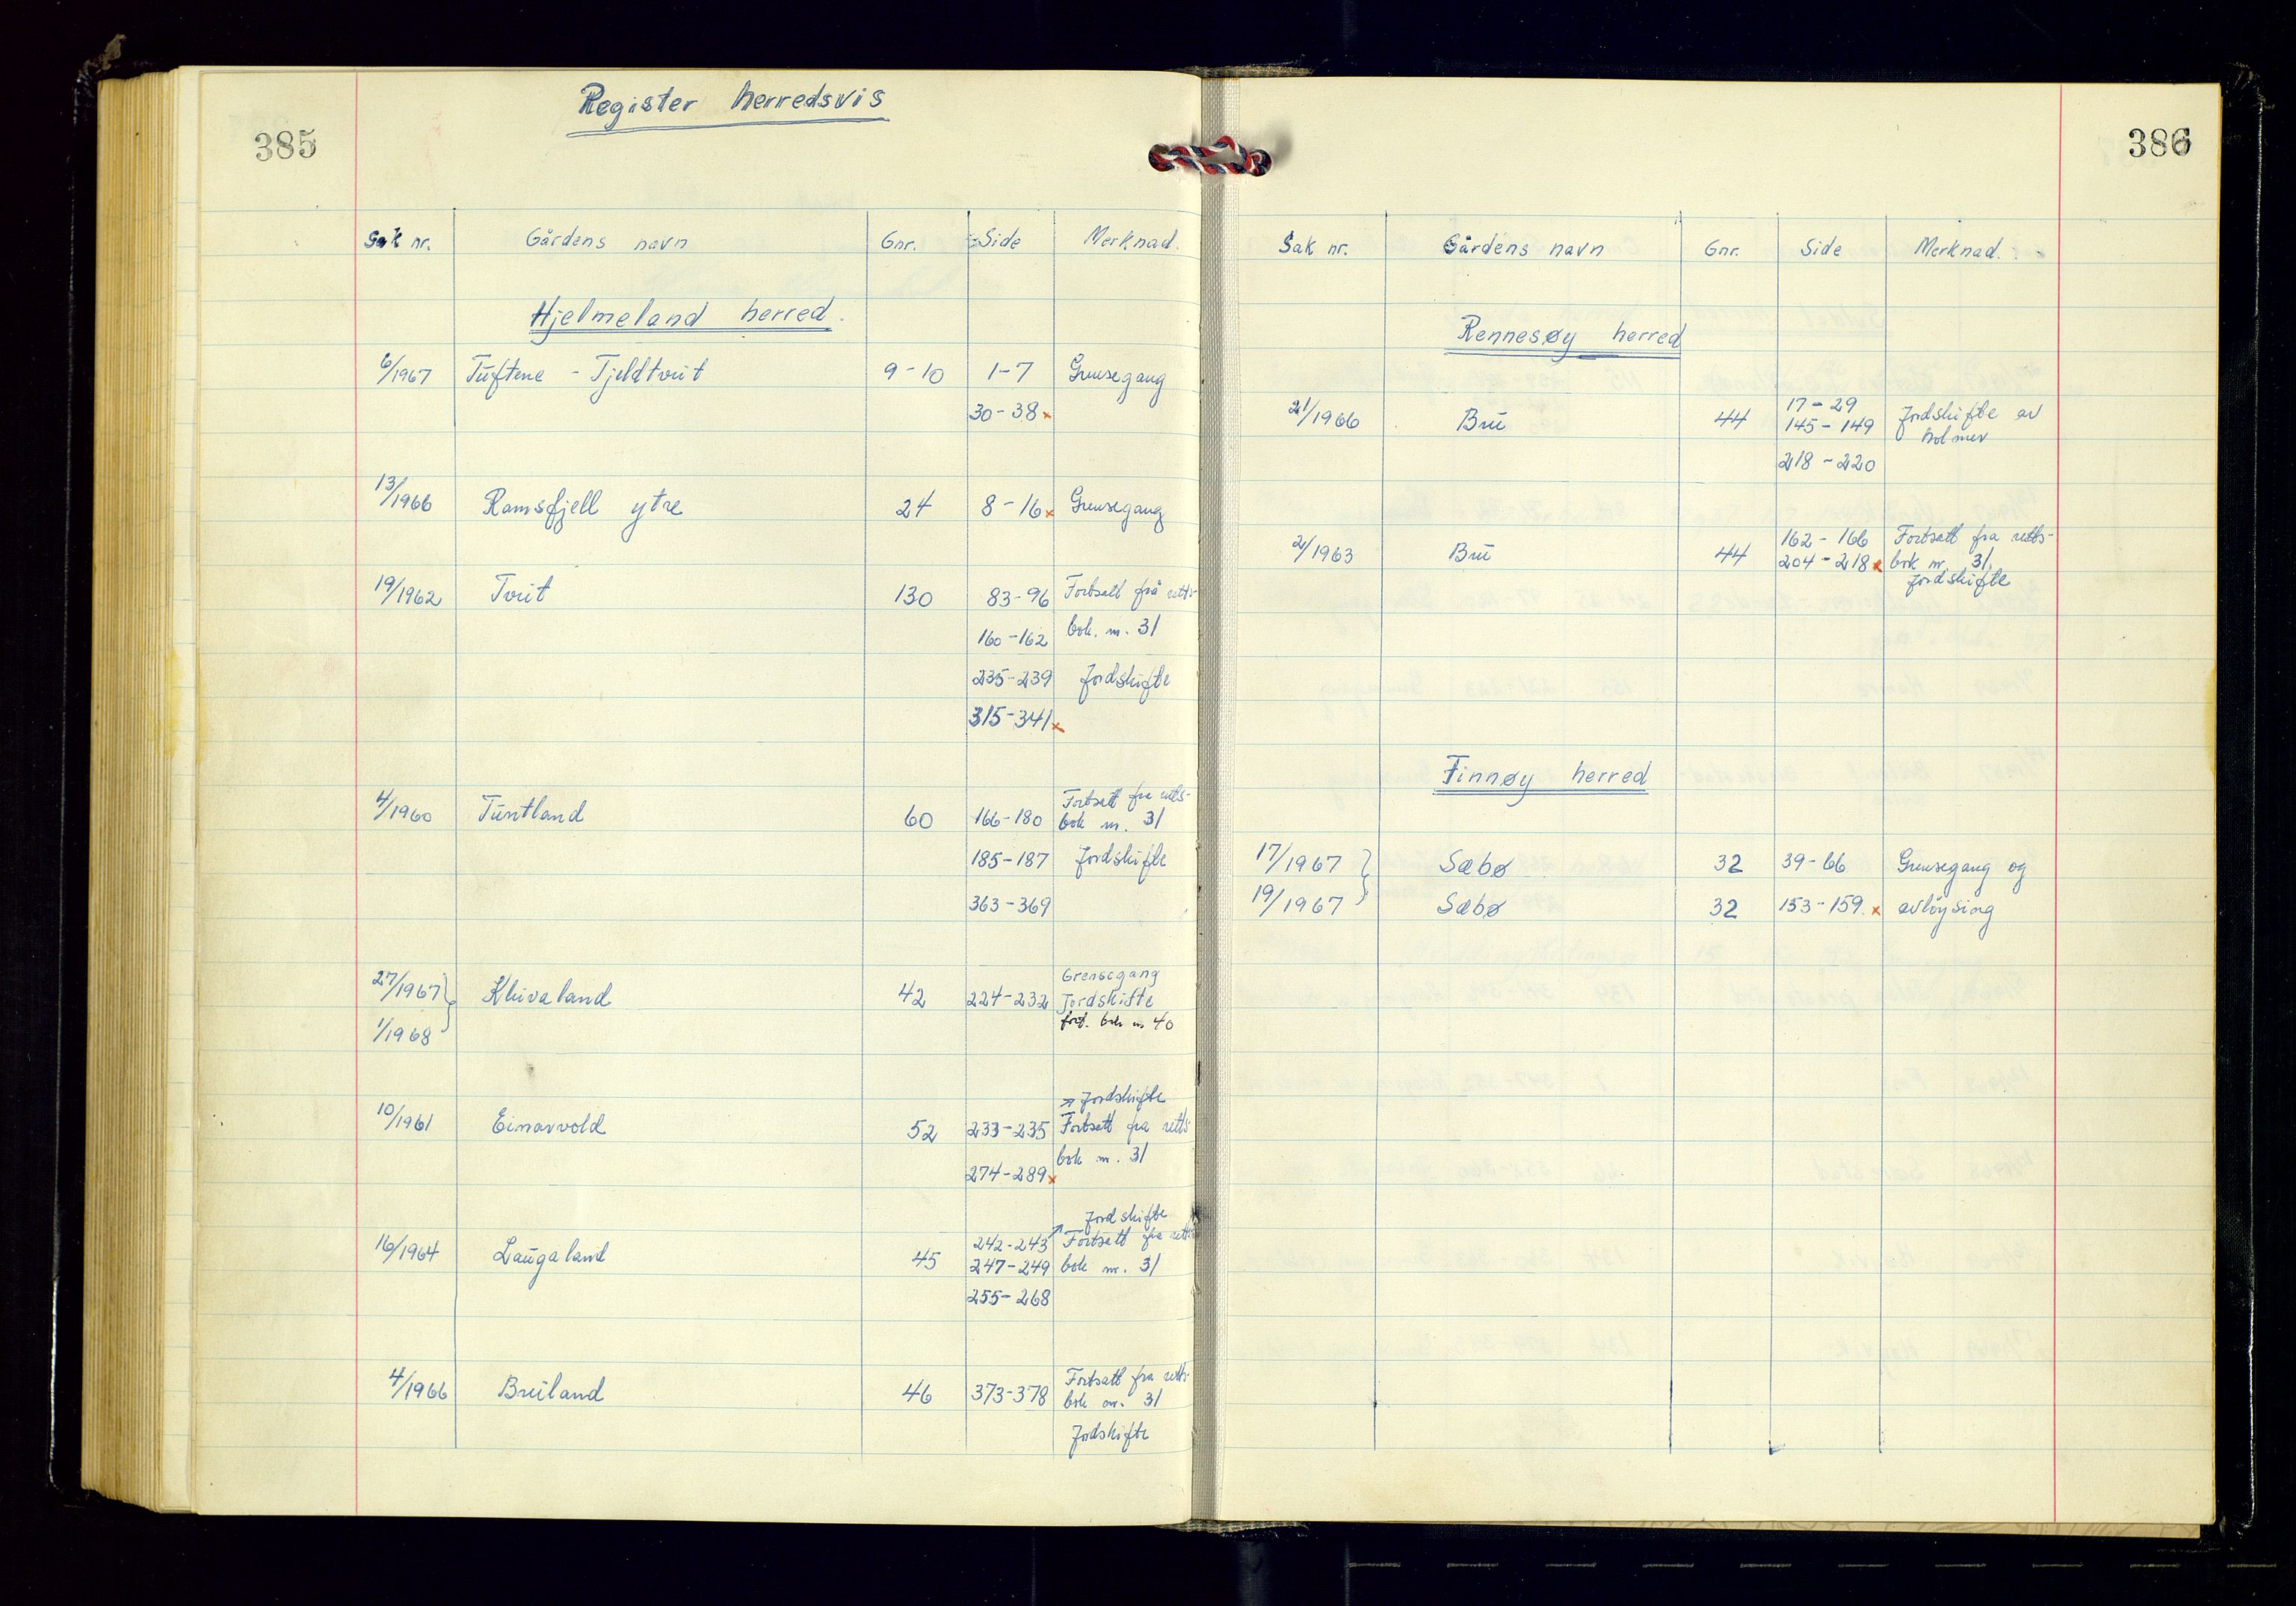 385
Register herredsvis
Sak nr. Gårdens navn Gnr. Side Merknad.
Hjelmeland herred.
6/1967 Tuftene - Tjeldtveit 9-10 1-7 Grensegang
30-38 x
13/1966 Ramsfjell ytre 24 8-16 x Grensegang
19/1962 Tveit 130 83-96 Fortsatt frå retts-
160-162 bok. nr. 31
235-239 Jordskifte
315-341 x
4/1960 Tuntland 60 166-180 Fortsatt fra retts-
bok nr. 31
185-187 Jordskifte
363-369
27/1967 } Kleivaland 42 224-232 Grensegang
Jordskifte
1/1968 fort. bok nr 40
→ Jordskifte
10/1961 Einarvold 52 233-235 Fortsatt fra retts
bok nr. 31
274-289 x
Jordskifte
16/1964 Laugaland 45 242-243 Fortsatt fra retts
247-249 bok nr. 31
255-268
4/1966 Bruland 46 373-378 Fortsatt fra retts-
bok nr. 31
Jordskifte
386
Sak nr. Gårdens navn Gnr. Side Merknad.
Rennesøy herred
21/1966 Bru 44 17-29 Jordskifte av
145-149 holmer
218-220
2/1963 Bru 44 162-166 Fortsatt fra retts-
204-218 x bok nr. 31.
Jordskifte
Finnøy herred
17/1967 } Sæbø 32 39-66 Grensegang og
19/1967 Sæbø 32 153-159. x avløysing